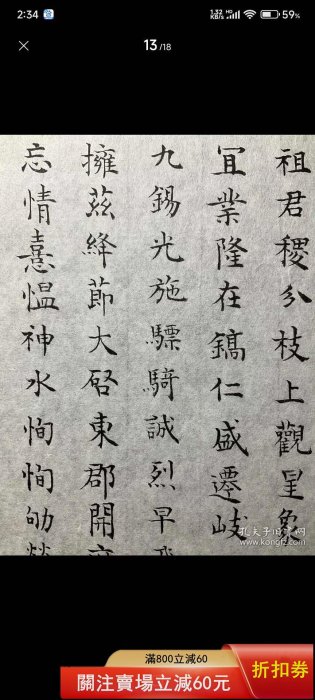 2:34
1.32 KB/s
59%
13/18
祖君稷分枝上觀呈象
冝業隆在鎬仁盛遷岐
九錫光施驃騎誠烈早
擁茲絳節大啓東郡開
忘情憙愠神水恂恂
孔夫子旧书网
www.kongfz.com
滿800立減60
關注賣場立減60元
折扣券